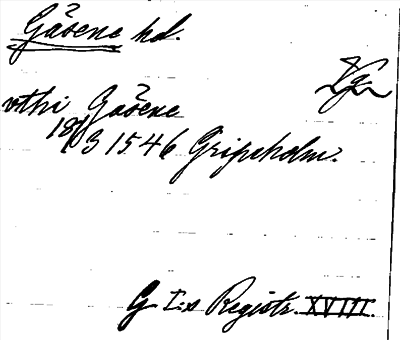 Gåsene hd.
Vg.
vthi Gåsene
18/3 1546 Gripsholm.
G I:s Registr. XVIII.